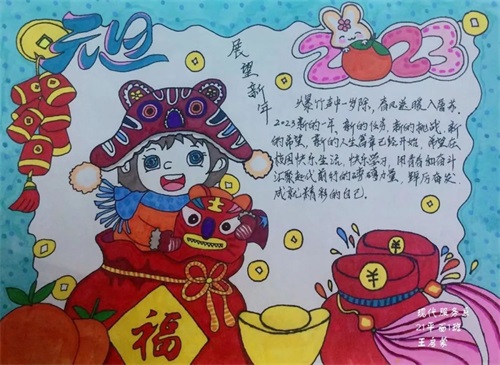 元旦
展望新年
2023
爆竹声中一岁除，春风送暖入屠苏.
2023新的一年，新的任务，新的挑战，新
的希望，新的人生篇章已经开始，希望在
校园快乐生活，快乐学习，用青春和奋斗
汇聚起代前行的磅礴力量，踔厉奋发
成就精彩的自己.
福
¥
¥
现代服务
21平面1班
王